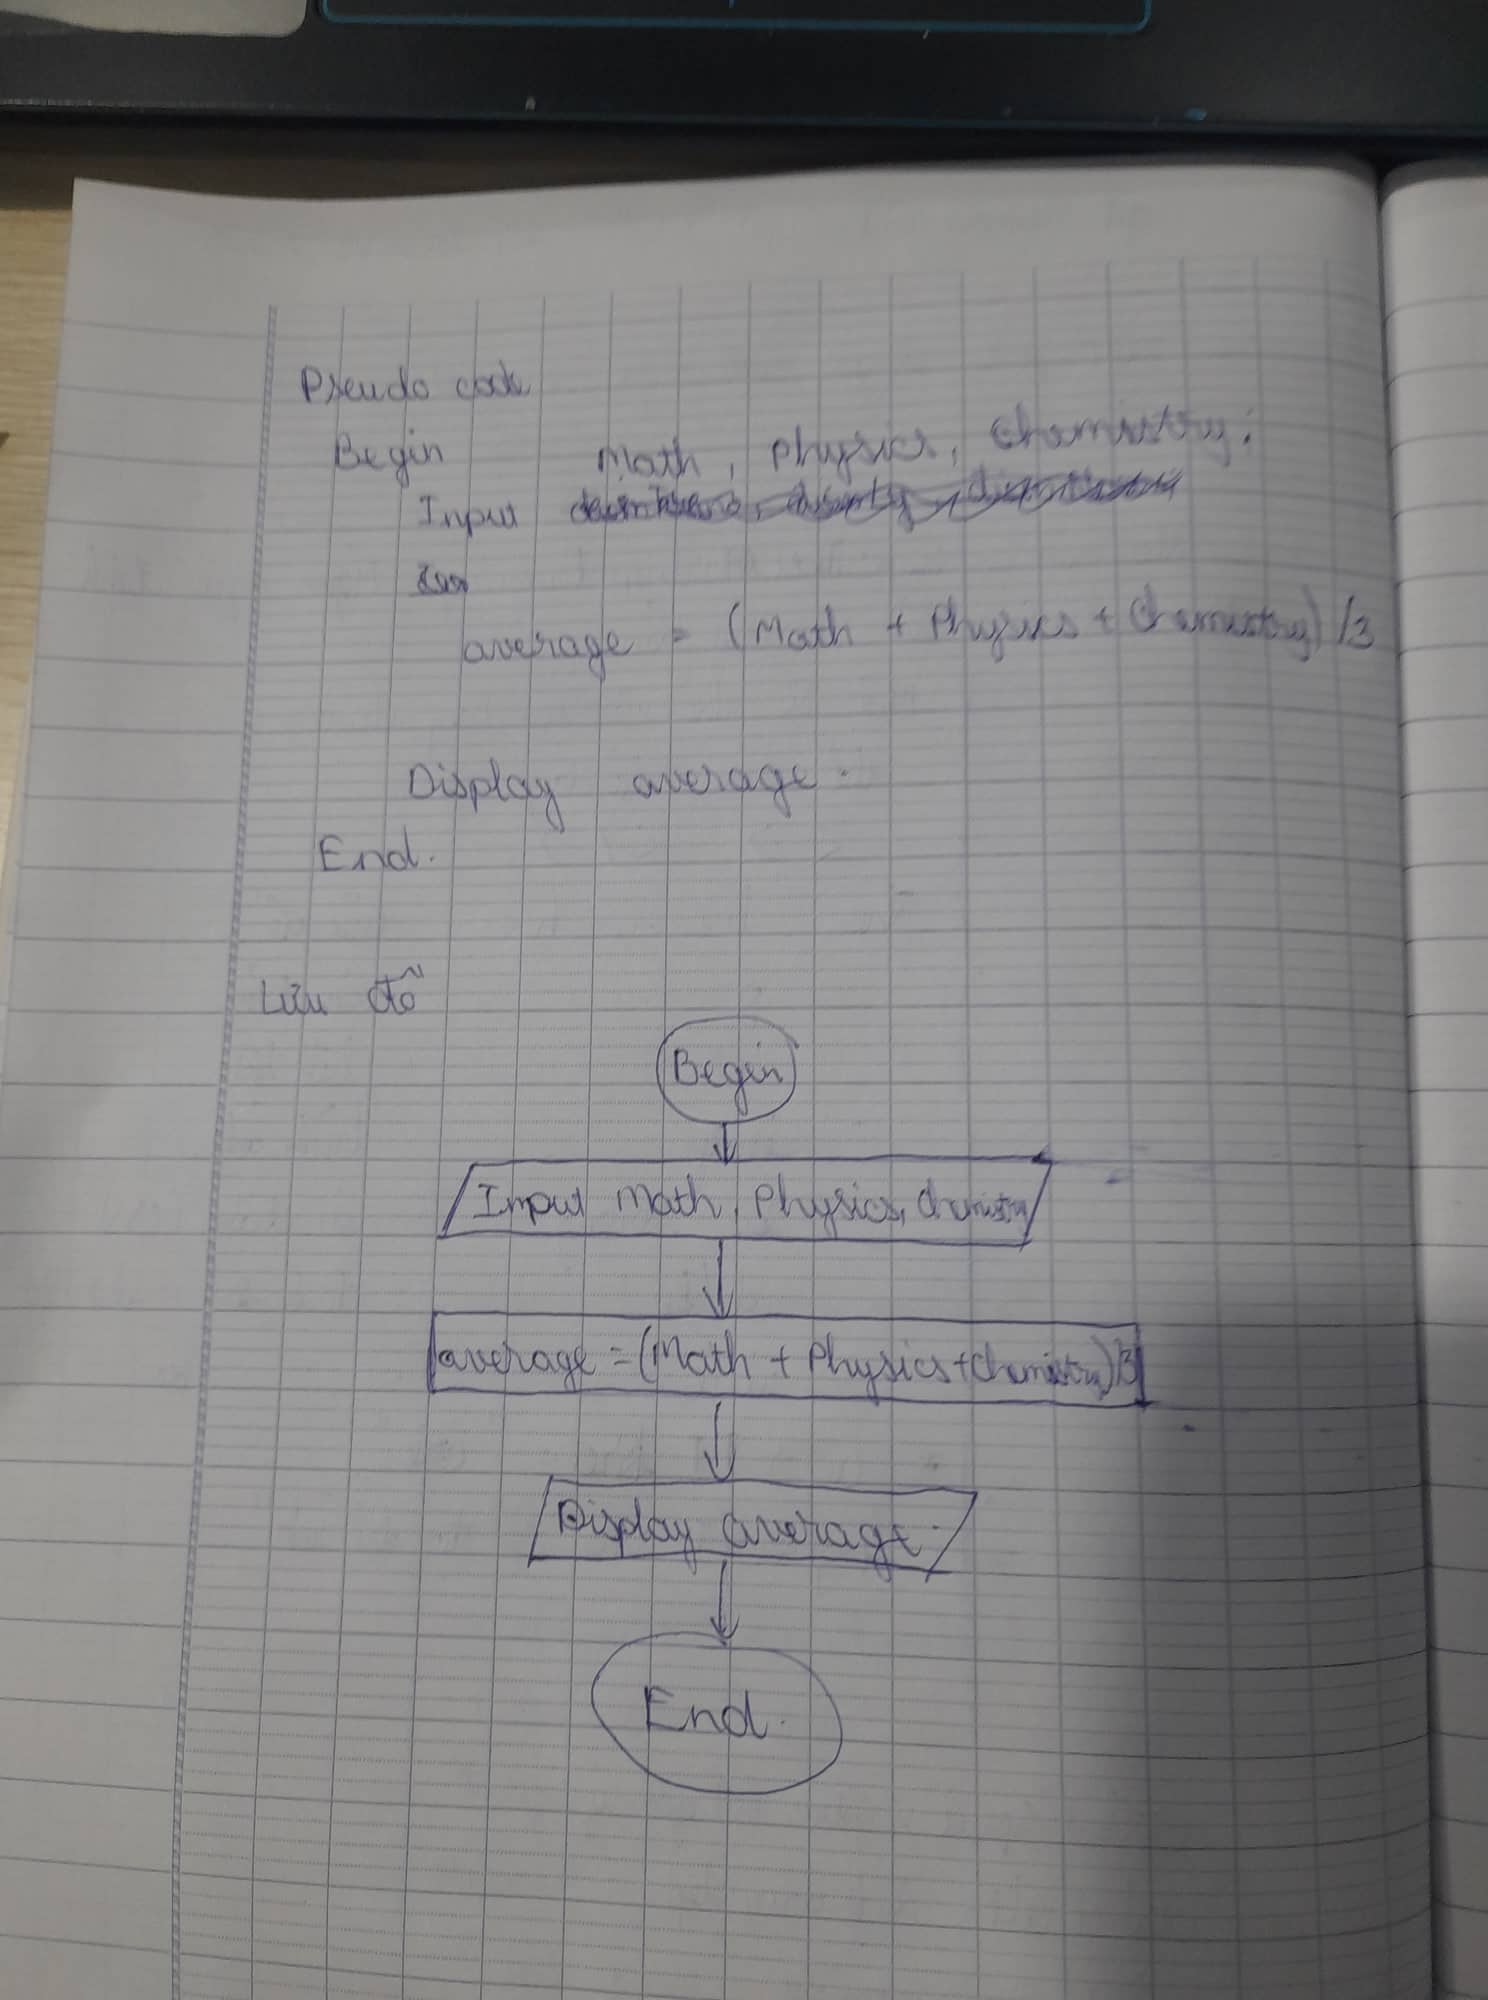 Pseudo code
Begin
Math, Physics, Chemistry;
Input
average = (Math + Physics + Chemistry) /3
Display average.
End.
Lưu đồ
Begin
Input Math, Physics, Chemistry
average = (Math + Physics + Chemistry)/3
Display average.
End.